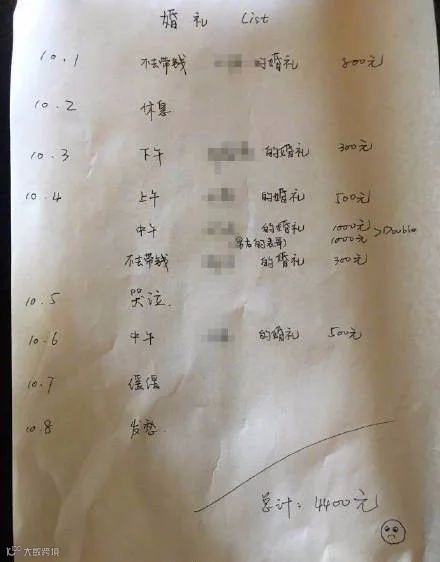 婚礼 List
10.1 不去带钱 的婚礼 800元
10.2 休息
10.3 下午 的婚礼 300元
10.4 上午 的婚礼 500元
中午 的婚礼 1000元
的表哥) 1000元 >Double
不去带钱 的婚礼 300元
10.5 哭泣.
10.6 中午 的婚礼 500元
10.7 缓缓
10.8 发愁.
总计: 4400元
大数跨境